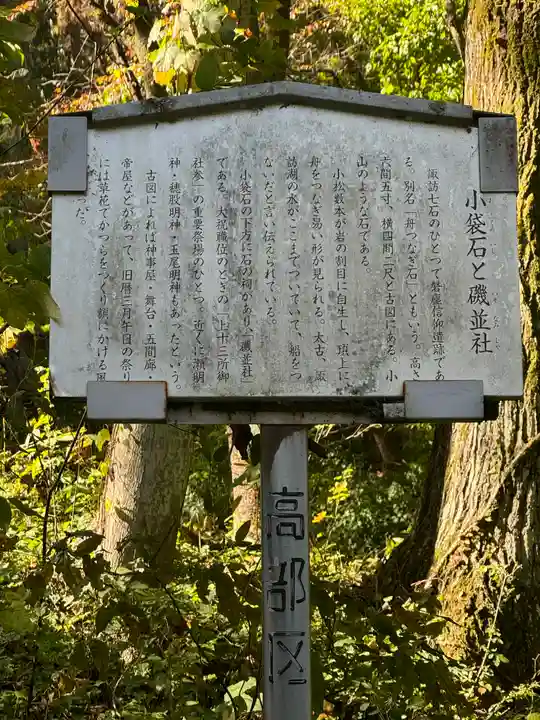 小袋石と磯並社
諏訪七石のひとつで磐座信仰遺跡であ
る。別名「舟つなぎ石」ともいう。高さ
六間五寸、横四間二尺と古図にある。小
山のような石である。
小松数本が岩の割目に自生し、頂上に
舟をつなぎ易い形が見られる。太古、諏
訪湖の水がここまでついていて、船をつ
ないだと言い伝えられている。
小袋石の下方に石の祠があり「磯並社」
である。大祝職位のときの「上十三所御
社参」の重要祭場のひとつ。近くに瀬明
神・穂股明神・玉尾明神もあったという。
古図によれば神事屋・舞台・五間廊・
帝屋などがあって、旧暦三月午日の祭り
には草花でかつらをつくり額にかける風
った。
高部区